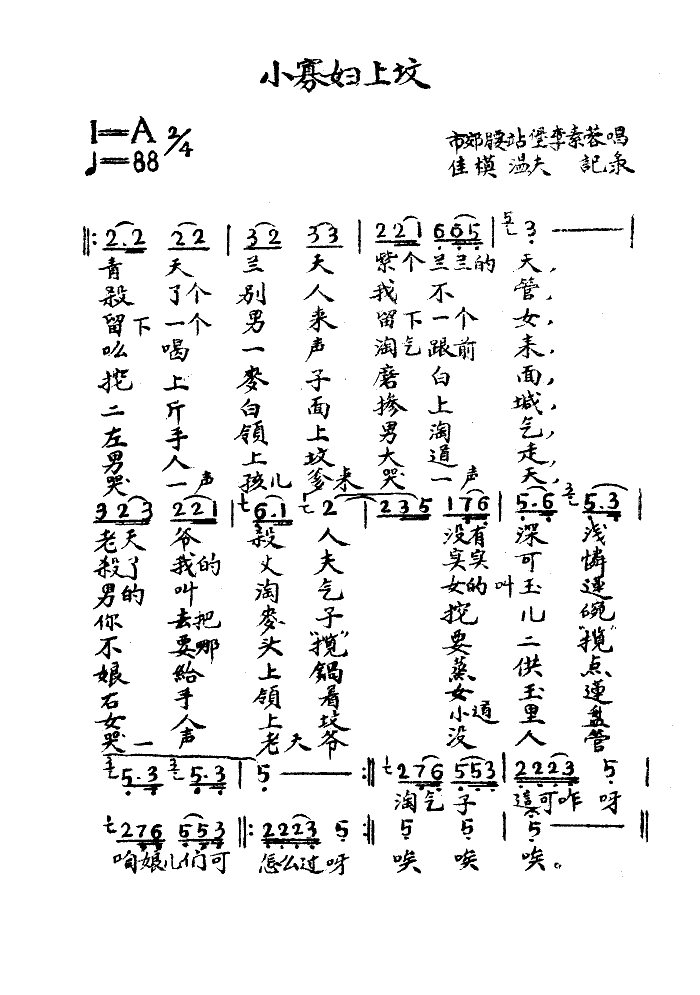 小寡妇上坟
1=A 2/4
♩=88
市郊腰站堡李素蓉唱
佳模 温夫 記录
‖: 2·2 2 2 | 3 2 3 3 | 2 2 1 6 6 5 | 3 — |
青 天 兰 天 紫个兰兰的 天,
殺 了个 别 人 我 不 管,
留下 一个 男 来 留下 一个 女,
吆 喝 一 声 淘气 跟前 来,
挖 上 麥 子 磨 白 面,
二 斤 白 面 掺 上 堿,
左 手 領 上 男 淘 气,
男 人 上 坟 大 道 走,
哭 一声 孩儿 爹来 哭 一声 天,
3 2 3 2 2 1 | 6·1 2 | 2 3 5 1 7 6 | 5·6 5·3
老天 爷 殺 人 没有 深 浅
殺了 我的 丈 夫 实实 可 憐
男的 叫 淘 气 女的 叫 玉 莲
你 去把 麥 子 挖 儿 碗
不 要那 头 "揽" 要 二 "揽"
娘 給 上 鍋 蒸 供 点
右 手 領 着 女 玉 莲
女 人 上 坟 小道 里 盘
哭一 声 老天 爷 没 人 管
5·3 5·3 | 5 — :‖ 2 7 6 5 5 3 | 2 2 2 3 5 |
淘气 子 這可咋 呀
2 7 6 5 5 3 ‖: 2 2 2 3 5 :‖ 5 5 | 5 — ‖
咱娘儿们可 怎么过呀 唉 唉 唉。